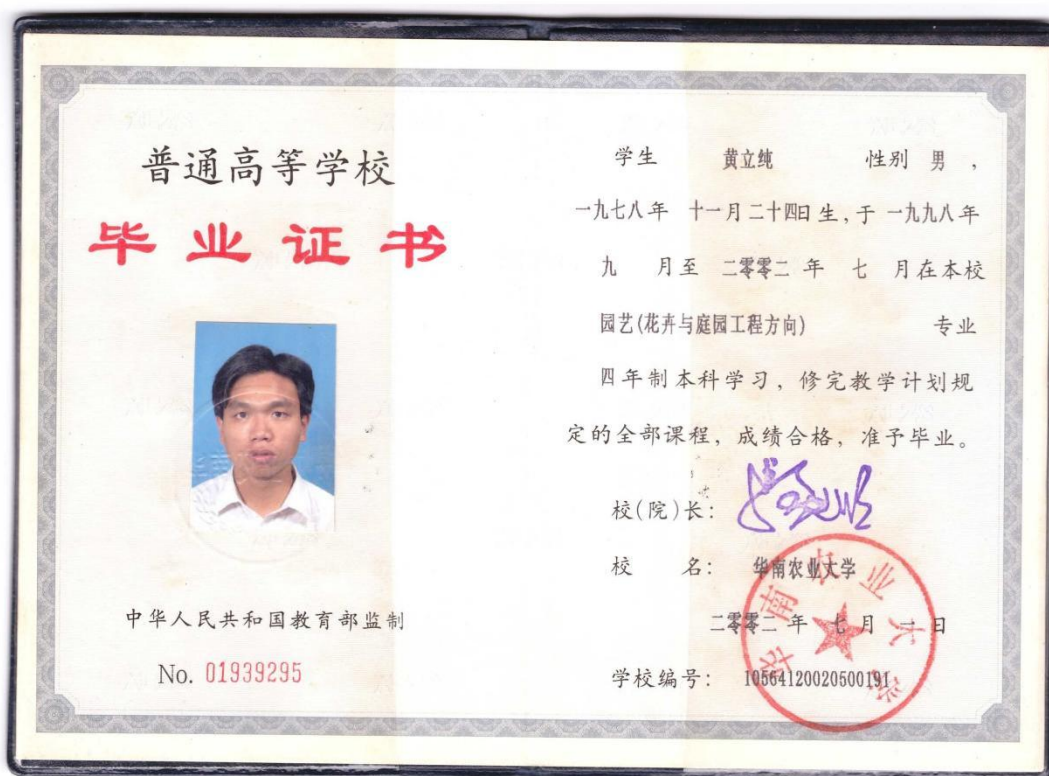 普通高等学校
毕业证书
中华人民共和国教育部监制
No. 01939295
学生 黄立纯 性别 男，
一九七八年 十一月二十四日生，于 一九九八年
九 月至 二零零二 年 七 月在本校
园艺(花卉与庭园工程方向) 专业
四年制本科学习，修完教学计划规
定的全部课程，成绩合格，准予毕业。
校(院)长：
校 名： 华南农业大学
二零零二 年 七 月 一 日
学校编号： 10564120020500191
华南农业大学